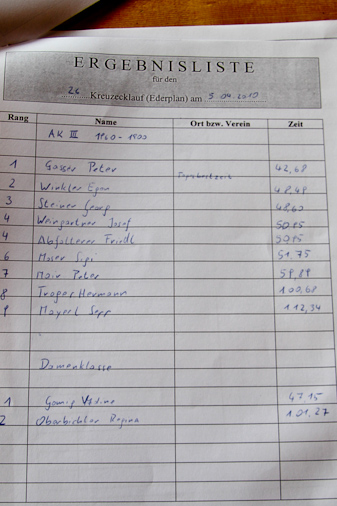 ERGEBNISLISTE
für den
26 Kreuzecklauf (Ederplan) am 3.04.2010
Rang Name Ort bzw. Verein Zeit
AK III 1960-1900
1 Gasser Peter Tagesbestzeit 42,68
2 Winkler Egon 48,48
3 Steiner Georg 48,60
4 Weingartner Josef 50,15
4 Abfalterer Friedl 50,15
6 Moser Sigi 51,75
7 Mair Peter 58,89
8 Hermann 1 00,68
9 Mayerl Sepp 1 12,34
Damenklasse
1 47,15
2 1 01,27